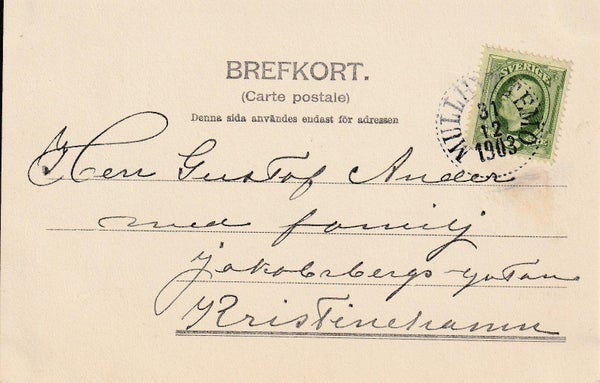 BREFKORT.
(Carte postale)
Denna sida användes endast för adressen
SVERIGE
31
12
1903
Herr Gustaf Ander
med familj
Jakobsbergs-gatan
Kristinehamn